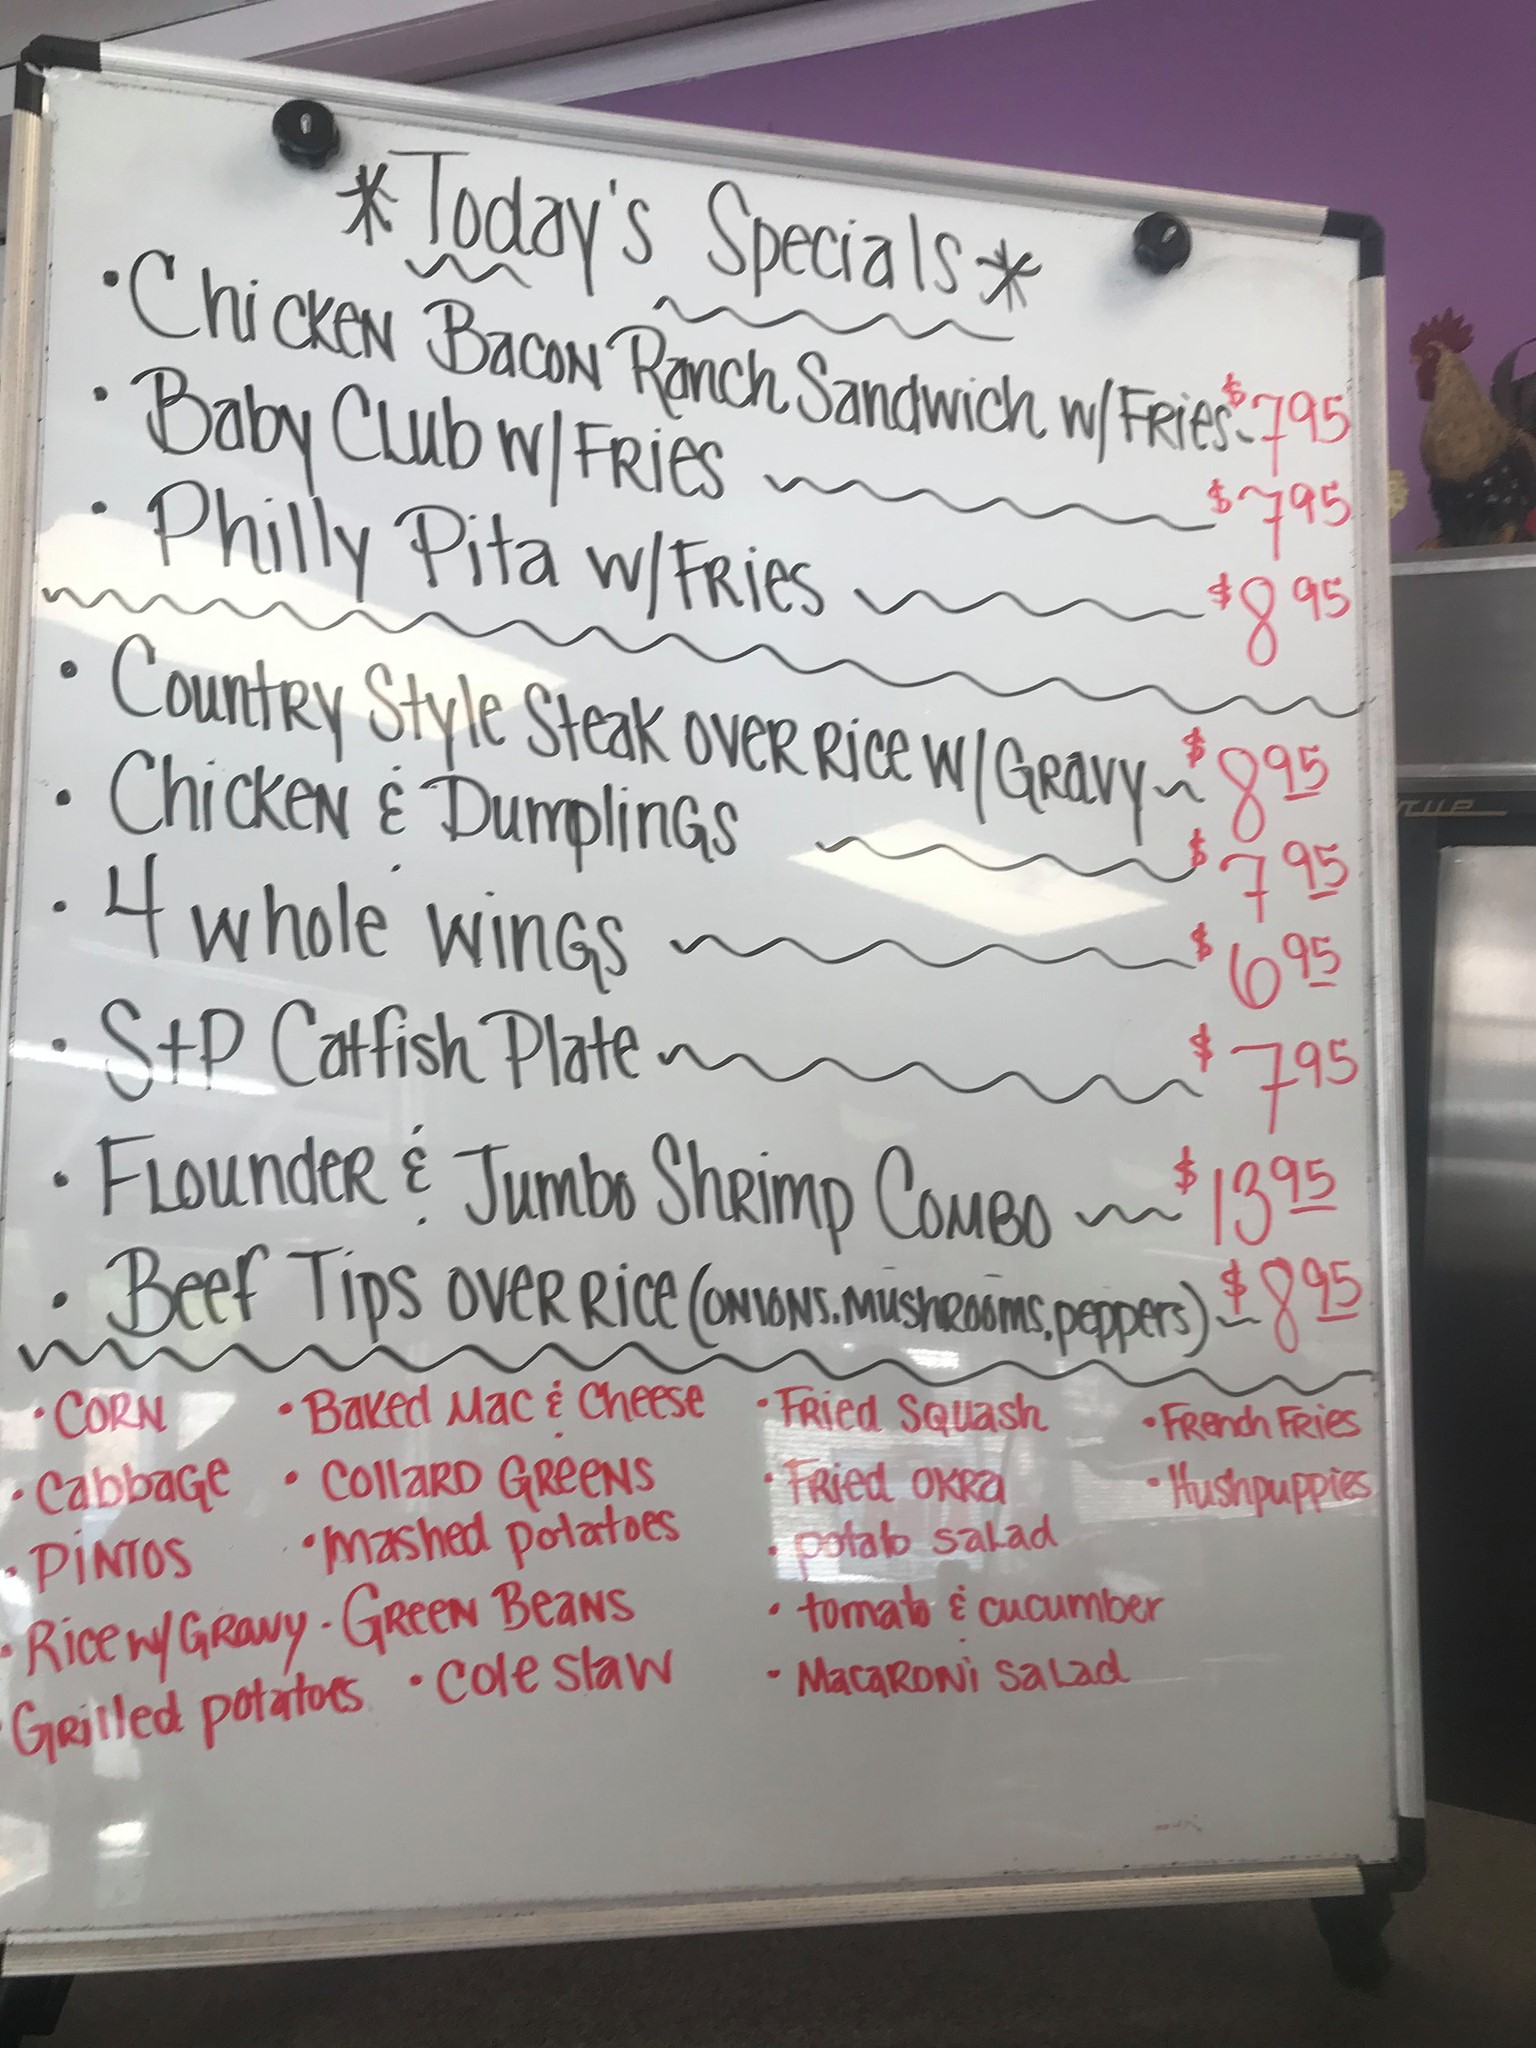 *Today's Specials*
• Chicken Bacon Ranch Sandwich w/Fries $7.95
• Baby Club w/Fries $7.95
• Philly Pita w/Fries $8.95
• Country Style Steak over Rice w/Gravy $8.95
• Chicken & Dumplings $7.95
• 4 whole wings $6.95
• S+P Catfish Plate $7.95
• Flounder & Jumbo Shrimp Combo $13.95
• Beef Tips over Rice (onions, mushrooms, peppers) $8.95
• Corn • Baked Mac & Cheese • Fried Squash • French Fries
• Cabbage • Collard Greens • Fried Okra • Hushpuppies
• Pintos • mashed potatoes • potato salad
• Rice w/ Gravy • Green Beans • tomato & cucumber
• Grilled potatoes • Cole slaw • Macaroni Salad